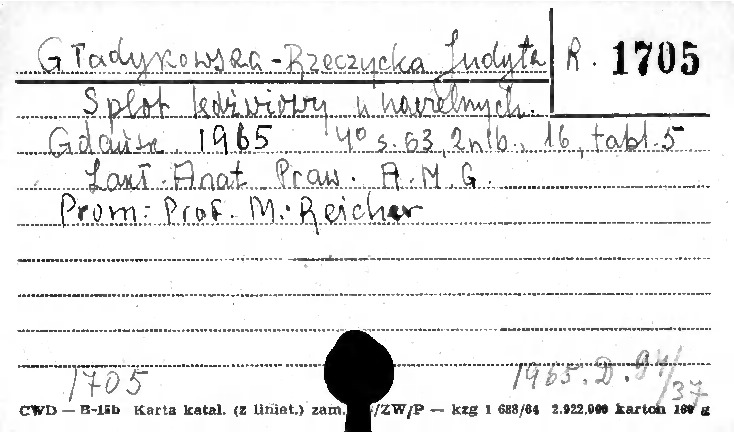 Gładykowska-Rzeczycka Judyta R. 1705
Splot lędźwiowy u naczelnych.
Gdańsk 1965 4° s. 63, 2 nlb., 16, tabl. 5
Zakł. Anat. Praw. A.M.G.
Prom: Prof. M. Reicher
1705 1965. D. 94/37
CWD — B-15b Karta katal. (z liniat.) zam. /ZW/P — kzg 1 688/64 2.922.000 karton 160 g